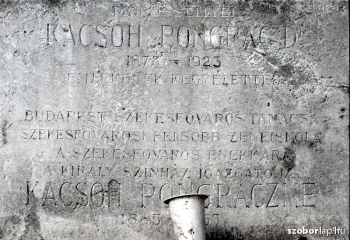 KACSÓH PONGRÁC DR
1873 - 1923
EMLÉKÉNEK
BUDAPEST SZÉKESFŐVÁROS TANÁCSA
SZÉKESFŐVÁROSI FELSŐBB ZENEISKOLA
A SZÉKESFŐVÁROS ÉNEKKARA
A KIRÁLY SZINHÁZ IGAZGATÓJA
KACSÓH PONGRÁCZNÉ
szoborlap.hu